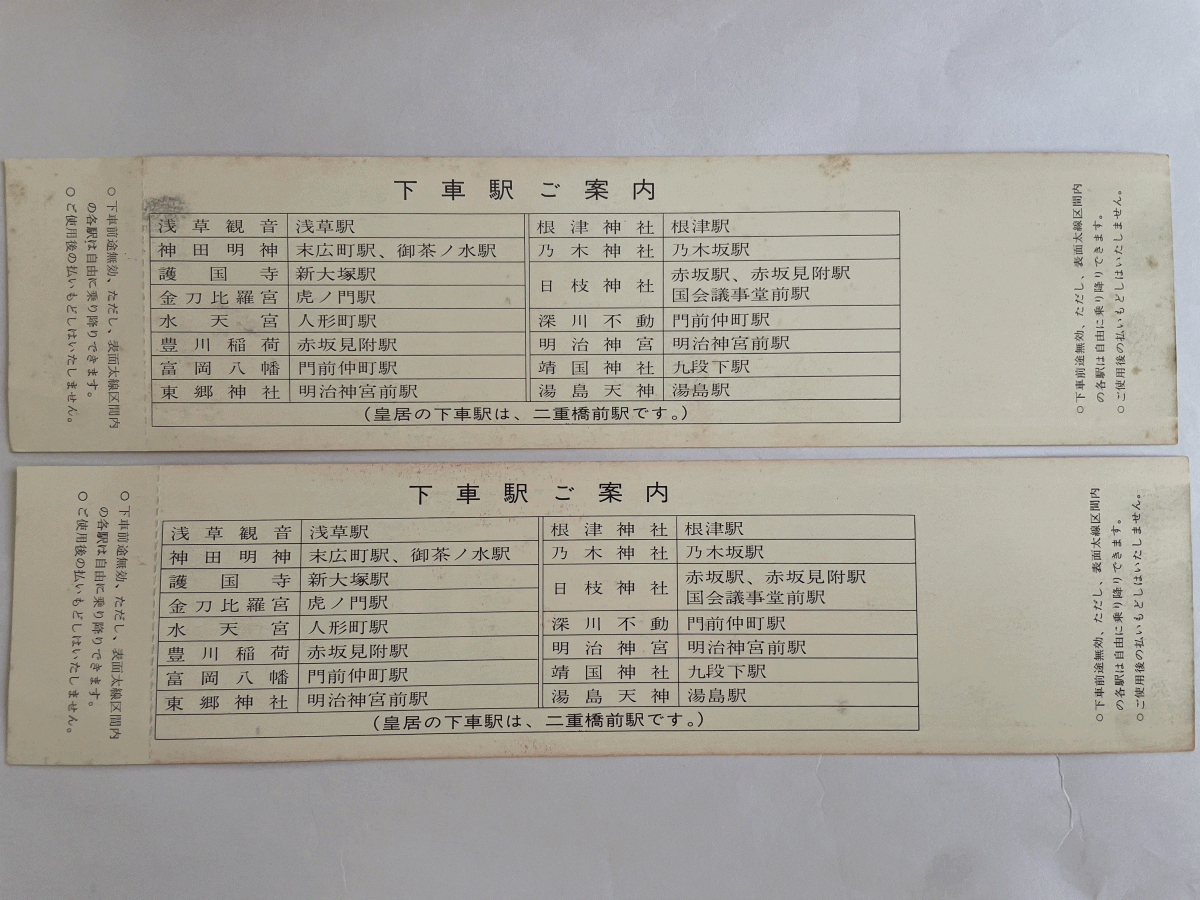 下車駅ご案内
浅草観音 浅草駅
神田明神 末広町駅、御茶ノ水駅
護国寺 新大塚駅
金刀比羅宮 虎ノ門駅
水天宮 人形町駅
豊川稲荷 赤坂見附駅
富岡八幡 門前仲町駅
東郷神社 明治神宮前駅
根津神社 根津駅
乃木神社 乃木坂駅
日枝神社 赤坂駅、赤坂見附駅
国会議事堂前駅
深川不動 門前仲町駅
明治神宮 明治神宮前駅
靖国神社 九段下駅
湯島天神 湯島駅
(皇居の下車駅は、二重橋前駅です。)
○下車前途無効、ただし、表面太線区間内
の各駅は自由に乗り降りできます。
○ご使用後の払いもどしはいたしません。
○下車前途無効、ただし、表面太線区間内
の各駅は自由に乗り降りできます。
○ご使用後の払いもどしはいたしません。
下車駅ご案内
浅草観音 浅草駅
神田明神 末広町駅、御茶ノ水駅
護国寺 新大塚駅
金刀比羅宮 虎ノ門駅
水天宮 人形町駅
豊川稲荷 赤坂見附駅
富岡八幡 門前仲町駅
東郷神社 明治神宮前駅
根津神社 根津駅
乃木神社 乃木坂駅
日枝神社 赤坂駅、赤坂見附駅
国会議事堂前駅
深川不動 門前仲町駅
明治神宮 明治神宮前駅
靖国神社 九段下駅
湯島天神 湯島駅
(皇居の下車駅は、二重橋前駅です。)
○下車前途無効、ただし、表面太線区間内
の各駅は自由に乗り降りできます。
○ご使用後の払いもどしはいたしません。
○下車前途無効、ただし、表面太線区間内
の各駅は自由に乗り降りできます。
○ご使用後の払いもどしはいたしません。